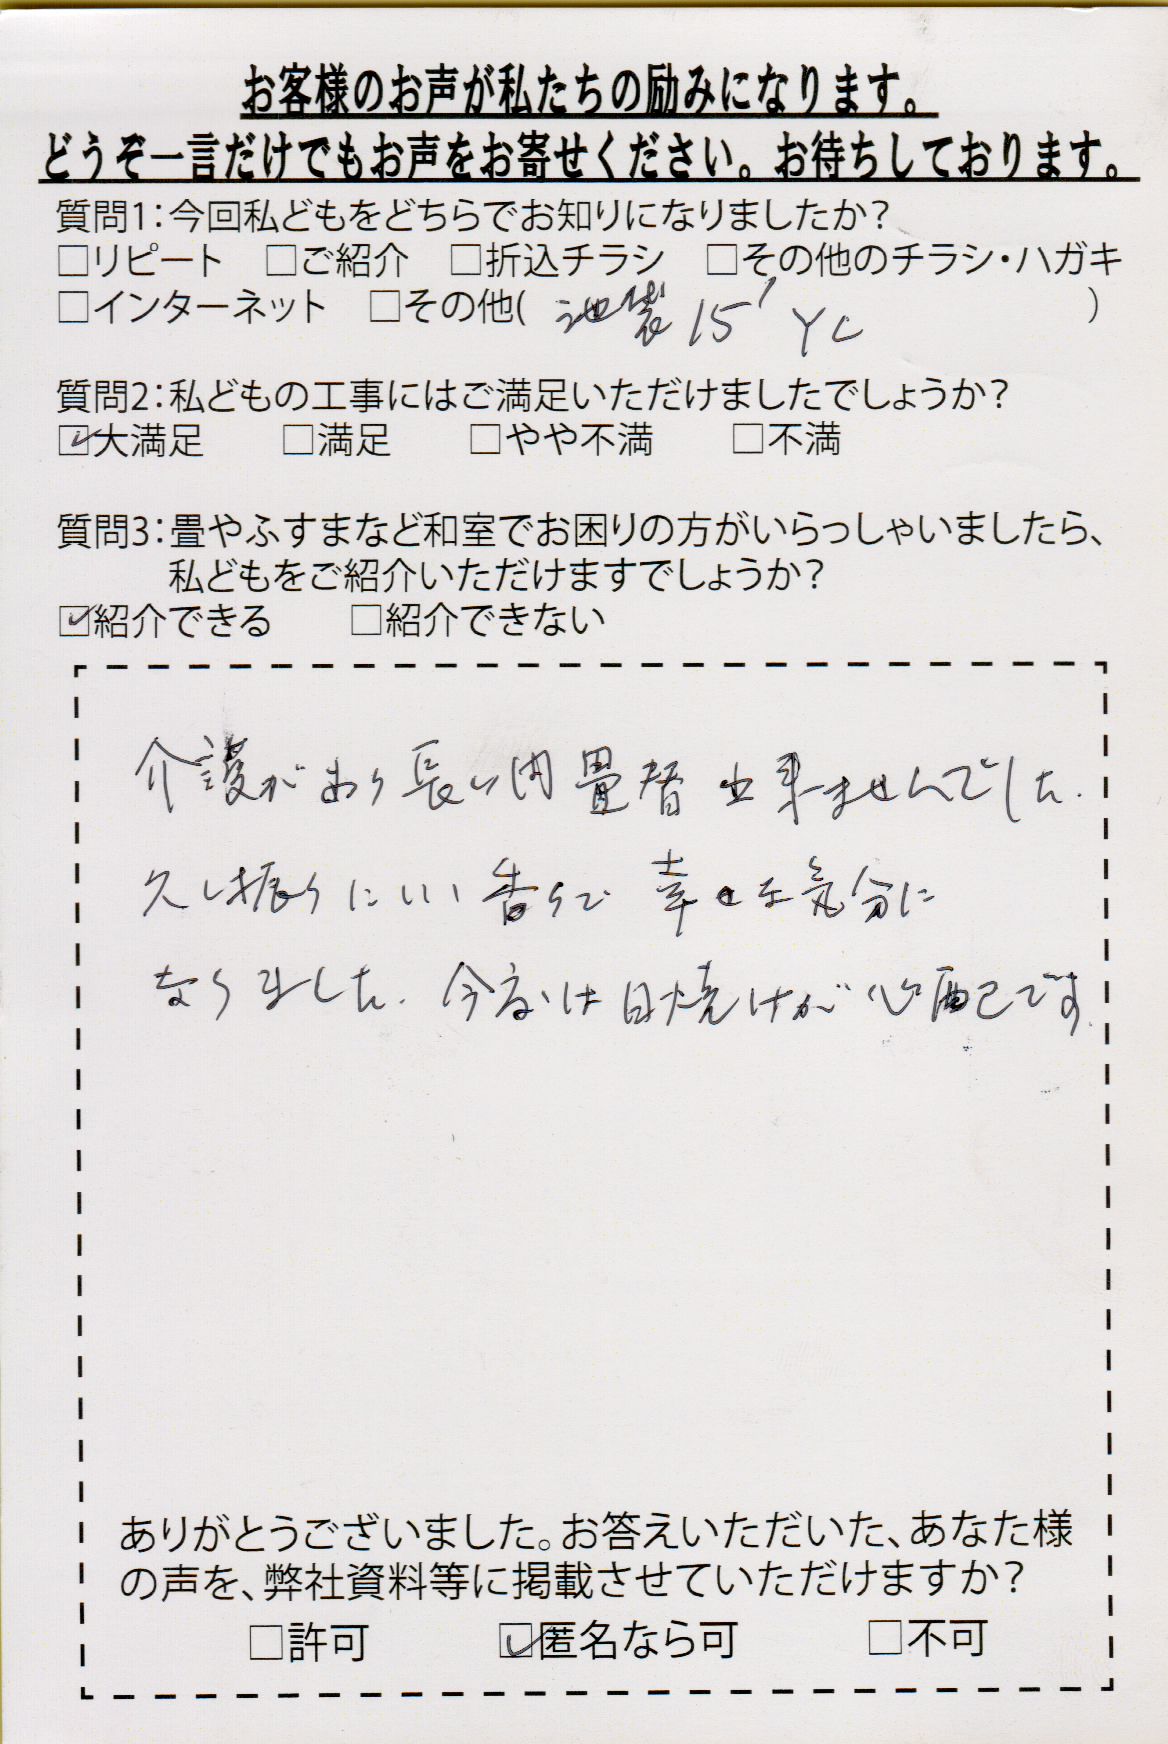 お客様のお声が私たちの励みになります。
どうぞ一言だけでもお声をお寄せください。お待ちしております。
質問1:今回私どもをどちらでお知りになりましたか?
□リピート □ご紹介 □折込チラシ □その他のチラシ・ハガキ
□インターネット □その他( 池袋 15' YC )
質問2:私どもの工事にはご満足いただけましたでしょうか?
☑大満足 □満足 □やや不満 □不満
質問3:畳やふすまなど和室でお困りの方がいらっしゃいましたら、
私どもをご紹介いただけますでしょうか?
☑紹介できる □紹介できない
介護があり長い間畳替出来ませんでした.
久し振りにいい香りで幸せな気分に
なりました. 今度は日焼けが心配です.
ありがとうございました。お答えいただいた、あなた様
の声を、弊社資料等に掲載させていただけますか?
□許可 ☑匿名なら可 □不可